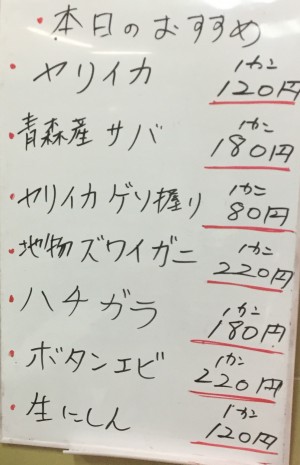 ・本日のおすすめ
・ヤリイカ 1カン 120円
・青森産サバ 1カン 180円
・ヤリイカゲソ握り 1カン 80円
・地物ズワイガニ 1カン 220円
・ハチガラ 1カン 180円
・ボタンエビ 1カン 220円
・生にしん 1カン 120円